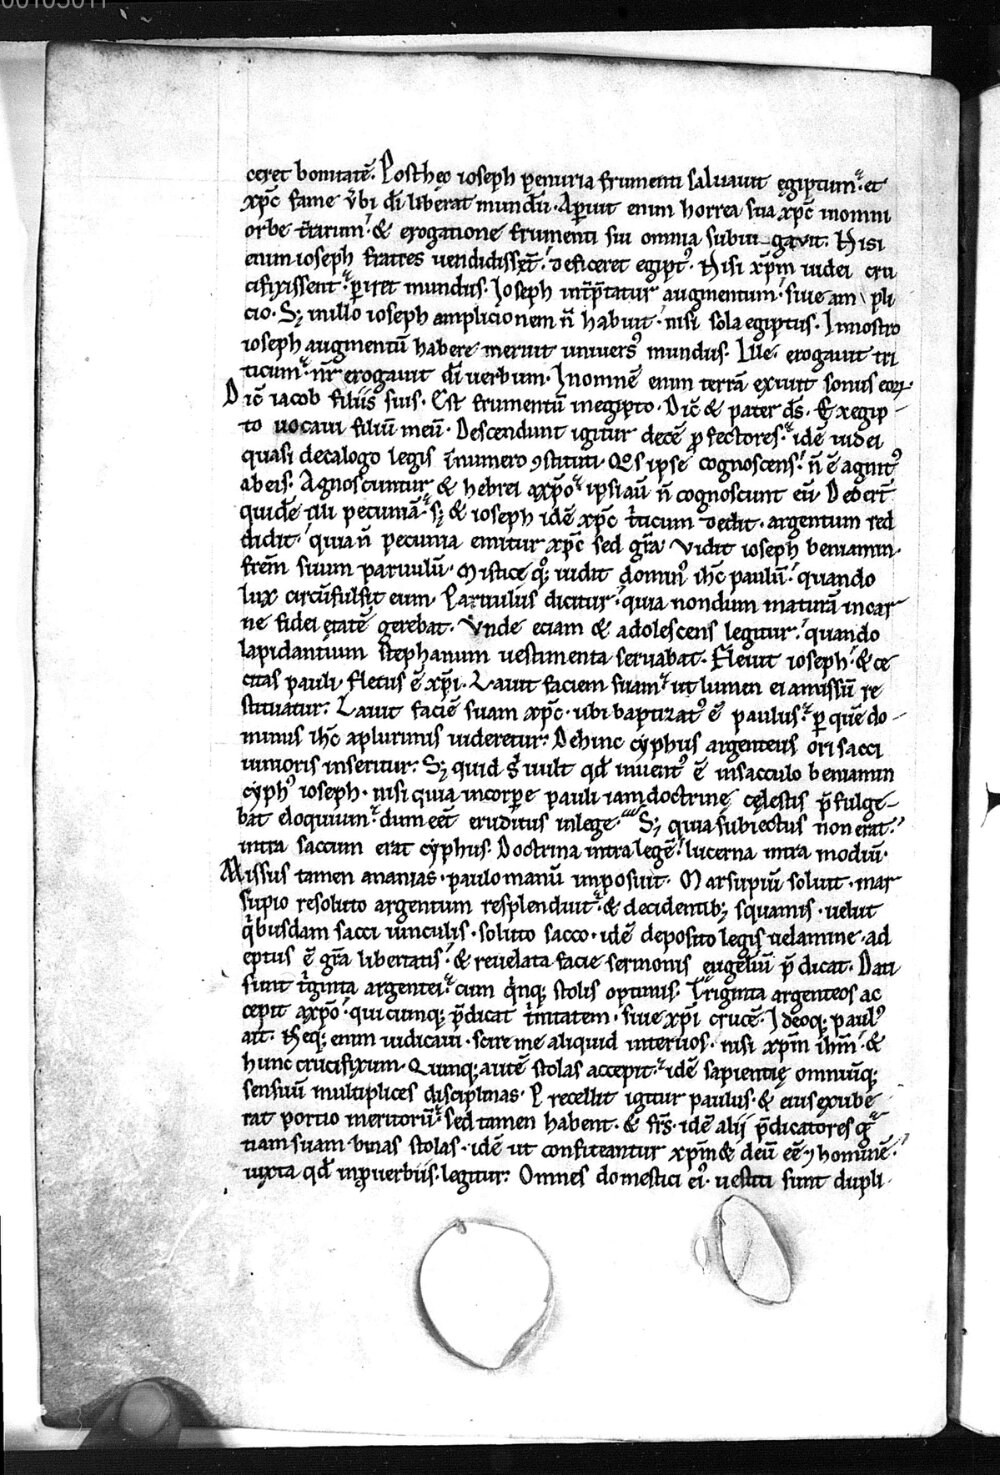 00105011
ceret bonitatē. Posthęc ioseph penuria frumenti saluauit ęgiptum. et
xp̄c fame v̄bi dī liberat mundū. Aperuit enim horrea sua xp̄c inomni
orbe t̄rarum. & erogatione frumenti sui omnia subiugauit. Nisi
enim ioseph fratres uendidissēt. deficeret egipt᷒. Nisi xp̄m iudei cru
cifixissent. periret mundus. Ioseph int̄p̄tatur augmentum. siue am pli
cio. Sꝫ inillo ioseph amplicionem n̄ habuit. nisi sola egiptus. Innostro
ioseph augmentū habere meruit uniuers᷒ mundus. Ille erogauit tri
ticum. nr̄ erogauit dī uerbum. Inomnē enim terrā exiuit sonus eorꝝ.
Dic̄ iacob filiis suis. Est frumentū inegipto. Dic̄ & pater dś. Ex egip
to uocaui filiū meū. Descendunt igitur decē ꝓfectores. idē iudei
quasi decalogo legis innumero ꝯstituti. Qͦs ipse cognoscens. n̄ ē agnit᷒
abeis. Agnoscuntur & hebrei axp̄o. ipsi aū n̄ cognoscunt eū. Dedert̄
quidē illi pecuniā. sꝫ & ioseph idē xp̄c t̄ticum dedit. argentum red
didit. quia n̄ pecunia emitur xp̄c sed gr̄a. Vidit ioseph beniamin
frēm suum paruulū. Mistice qͦꝫ uidit domin᷒ ih̄c paulū. quando
lux circūfulsit eum. Paruulus dicitur. quia nondum maturā incar
ne fidei ętatē gerebat. Vnde eciam & adolescens legitur. quando
lapidantium stephanum uestimenta seruabat. Fleuit ioseph. & cę
citas pauli. fletus ē xp̄i. Lauit faciem suam. ut lumen ei amissū re
stituatur. Lauit faciē suam xp̄c. ubi baptizat᷒ ē paulus. ꝑ quē do
minus ih̄c aplurimis uideretur. Dehinc cyphus argenteus ori sacci
iunioris inseritur. Sꝫ quid s̄ uult qd̄ inuent᷒ ē insacculo beniamin
cyph᷒ ioseph. nisi quia incorpe pauli iam doctrinę cęlestis p̄fulge
bat eloquium. dum eēt eruditus inlege. Sꝫ quia subiectus non erat.
intra saccum erat cyphus. Doctrina intra legē. lucerna intra modiū.
Missus tamen ananias. paulo manū imposuit. Marsupiū soluit. mar
supio resoluto argentum resplenduit. & decidentibꝫ squamis. uelut
qͥbusdam sacci uinculis. soluto sacco. idē deposito legis uelamine. ad
eptus ē gr̄a libertatis. & reuelata facie sermonis eugeliū p̄dicat. Dati
sunt tͥginta argentei. cum qͥnqꝫ stolis optimis. Triginta argenteos ac
cepit axp̄o. quicumqꝫ p̄dicat tͥnitatem. siue xp̄i crucē. Ideoqꝫ paul᷒
ait. Neqꝫ enim iudicaui. scire me aliquid interuos. nisi xp̄m ih̄m. &
hunc crucifixum. Quinqꝫ autē stolas accepit. idē sapientię omniūqꝫ
sensuū multiplices disciplinas. Precellit igitur paulus. & eius exube
rat portio meritorū. sed tamen habent. & frś. idē alij p̄dicatores gͣ
tiam suam. binas stolas. idē ut confiteantur xp̄m & deū eē. ⁊ hominē.
iuxta qd̄ inꝓuerbiis. legitur. Omnes domestici ei᷒. uestiti sunt dupli